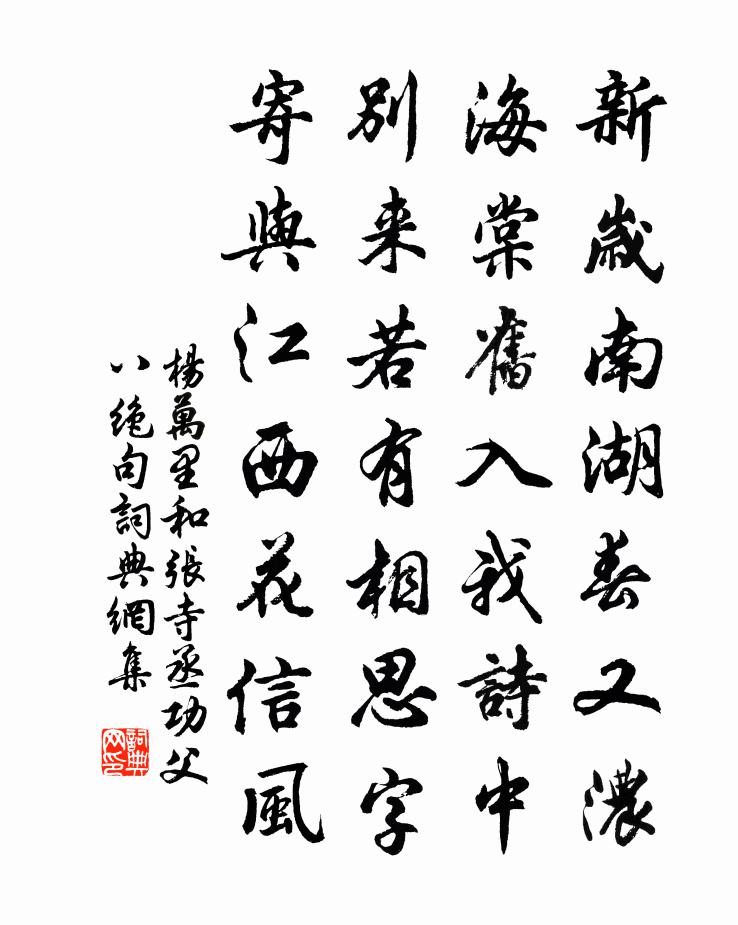 新歲南湖春又濃
海棠舊入我詩中
別来若有相思字
寄與江西花信風
楊萬里和張寺丞功父
八絶句詞典網集
詞典网印